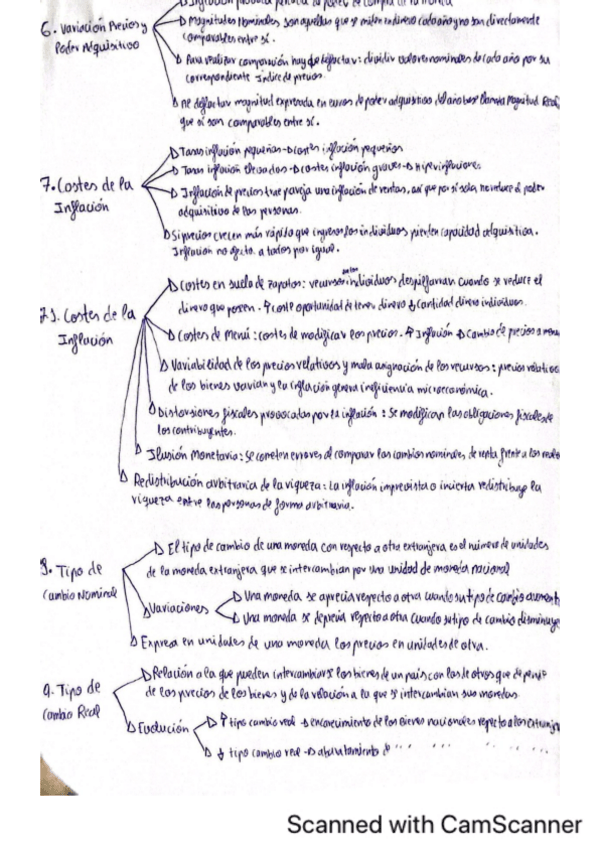 6. Variación Precios y
Poder Adquisitivo
Magnitudes nominales son aquellas que se miden en dinero cada año y no son directamente
comparables entre sí.
Para realizar comparación hay que deflactar: dividir valores nominales de cada año por su
correspondiente Indice de precios.
Al deflactar magnitud expresada en euros de poder adquisitivo del año base llamada Magnitud Real,
que sí son comparables entre sí.
7. Costes de la
Inflación
Tasas inflación pequeñas → Costes inflación pequeños
Tasas inflación elevadas → Costes inflación graves → Hiperinflaciones.
Inflación de precios trae pareja una inflación de rentas, así que por sí sola, no reduce el poder
adquisitivo de las personas.
Si precios crecen más rápido que ingresos los individuos pierden capacidad adquisitiva.
Inflación no afecta a todos por igual.
7.1. Costes de la
Inflación
Costes en suela de zapatos: recursos individuos despilfarran cuando se reduce el
dinero que poseen. ↑ coste oportunidad de tener dinero ↓ cantidad dinero individuos.
Costes de Menú: costes de modificar los precios. ↑ Inflación Cambio de precios a menu
Variabilidad de los precios relativos y mala asignación de los recursos: precios relativos
de los bienes varían y la inflación genera ineficiencia microeconómica.
Distorsiones fiscales provocadas por la inflación: Se modifican las obligaciones fiscales de
los contribuyentes.
Ilusión Monetaria: Se cometen errores al comparar los cambios nominales de renta frente a los reales
Redistribución arbitraria de la riqueza: La inflación imprevista o incierta redistribuye la
riqueza entre las personas de forma arbitraria.
Tipo de
Cambio Nominal
El tipo de cambio de una moneda con respecto a otra extranjera es el número de unidades
de la moneda extranjera que se intercambian por una unidad de moneda nacional
Variaciones
Una moneda se aprecia respecto a otra cuando su tipo de cambio aument
Una moneda se deprecia respecto a otra cuando su tipo de cambio disminuye
Expresa en unidades de una moneda los precios en unidades de otra.
9. Tipo de
Cambio Real
Relación a la que pueden intercambiarse los bienes de un país con los de otros que depende
de los precios de los bienes y de la relación a la que se intercambian sus monedas.
Evolución
↑ tipo cambio real → encarecimiento de los bienes nacionales respecto a los extranje
↓ tipo cambio real → abaratamiento " " " " "
Scanned with CamScanner